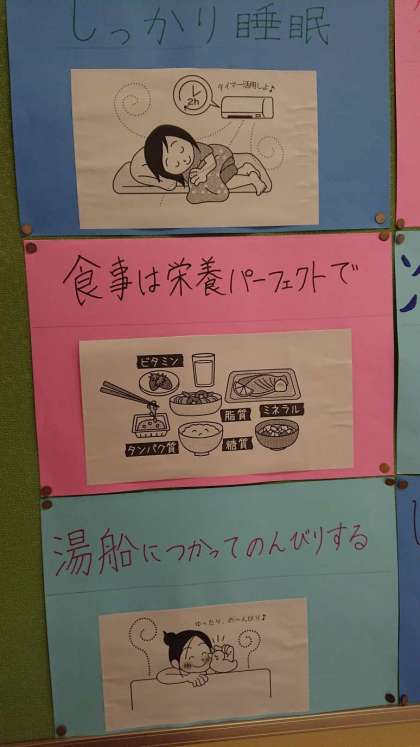 しっかり睡眠
タイマー活用しよ♪
2h
食事は栄養パーフェクトで
ビタミン
脂質
ミネラル
タンパク質
糖質
湯船につかってのんびりする
ゆったり、の〜んびり♪